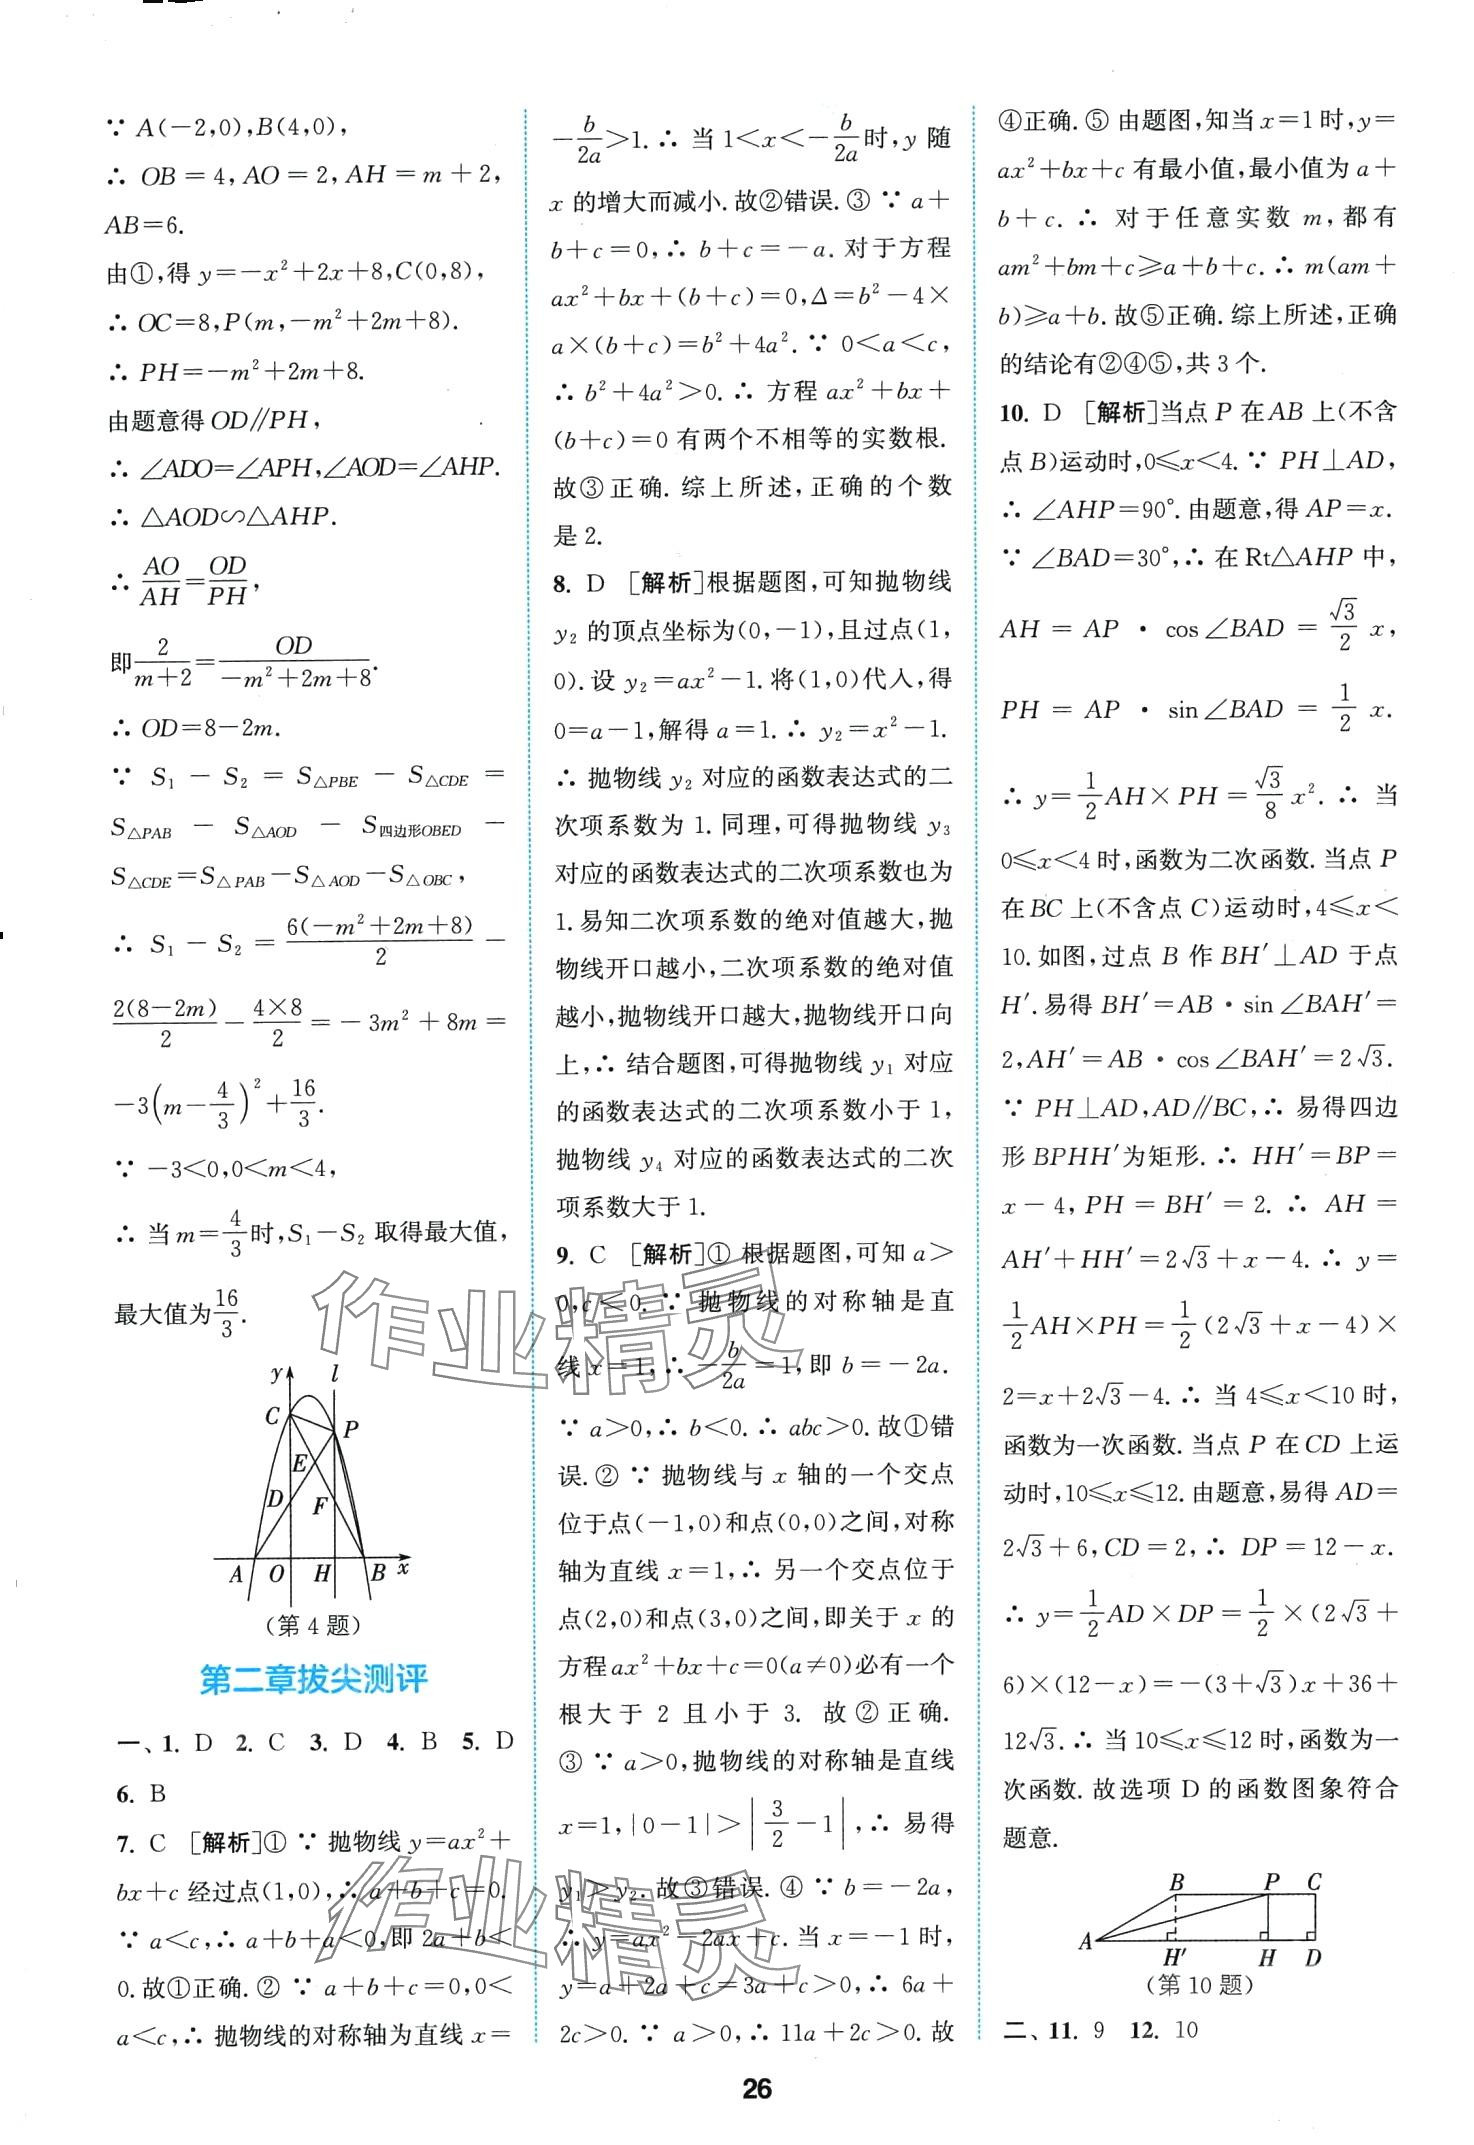 ∵ A(－2,0),B(4,0),
∴ OB＝4,AO＝2,AH＝m＋2,
AB＝6.
由①,得 y＝－x²＋2x＋8,C(0,8),
∴ OC＝8,P(m,－m²＋2m＋8).
∴ PH＝－m²＋2m＋8.
由题意得 OD∥PH,
∴ ∠ADO＝∠APH,∠AOD＝∠AHP.
∴ △AOD∽△AHP.
∴ AO/AH＝OD/PH,
即 2/(m＋2)＝OD/(－m²＋2m＋8).
∴ OD＝8－2m.
∵ S₁ － S₂ ＝ S△PBE － S△CDE ＝
S△PAB － S△AOD － S四边形OBED －
S△CDE＝S△PAB－S△AOD－S△OBC,
∴ S₁ － S₂ ＝ 6(－m²＋2m＋8)/2 －
2(8－2m)/2 － 4×8/2 ＝ －3m²＋8m ＝
－3(m－4/3)²＋16/3.
∵ －3＜0,0＜m＜4,
∴ 当 m＝4/3时,S₁－S₂ 取得最大值,
最大值为16/3.
y l
C P
E
D F
A O H B x
(第 4 题)
第二章拔尖测评
一、1. D 2. C 3. D 4. B 5. D
6. B
7. C [解析]① ∵ 抛物线 y＝ax²＋
bx＋c 经过点(1,0),∴ a＋b＋c＝0.
∵ a＜c,∴ a＋b＋a＜0,即 2a＋b＜
0.故①正确.② ∵ a＋b＋c＝0,0＜
a＜c,∴ 抛物线的对称轴为直线 x＝
－b/2a＞1.∴ 当 1＜x＜－b/2a时,y 随
x 的增大而减小.故②错误.③ ∵ a＋
b＋c＝0,∴ b＋c＝－a.对于方程
ax²＋bx＋(b＋c)＝0,Δ＝b²－4×
a×(b＋c)＝b²＋4a².∵ 0＜a＜c,
∴ b²＋4a²＞0.∴ 方程 ax²＋bx＋
(b＋c)＝0 有两个不相等的实数根.
故③正确.综上所述,正确的个数
是 2.
8. D [解析]根据题图,可知抛物线
y₂ 的顶点坐标为(0,－1),且过点(1,
0).设 y₂＝ax²－1.将(1,0)代入,得
0＝a－1,解得 a＝1.∴ y₂＝x²－1.
∴ 抛物线 y₂ 对应的函数表达式的二
次项系数为 1.同理,可得抛物线 y₃
对应的函数表达式的二次项系数也为
1.易知二次项系数的绝对值越大,抛
物线开口越小,二次项系数的绝对值
越小,抛物线开口越大,抛物线开口向
上,∴ 结合题图,可得抛物线 y₁ 对应
的函数表达式的二次项系数小于 1,
抛物线 y₄ 对应的函数表达式的二次
项系数大于 1.
9. C [解析]① 根据题图,可知 a＞
0,c＜0.∵ 抛物线的对称轴是直
线 x＝1,∴ －b/2a＝1,即 b＝－2a.
∵ a＞0,∴ b＜0.∴ abc＞0.故①错
误.② ∵ 抛物线与 x 轴的一个交点
位于点(－1,0)和点(0,0)之间,对称
轴为直线 x＝1,∴ 另一个交点位于
点(2,0)和点(3,0)之间,即关于 x 的
方程 ax²＋bx＋c＝0(a≠0)必有一个
根大于 2 且小于 3. 故②正确.
③ ∵ a＞0,抛物线的对称轴是直线
x＝1,|0－1|＞|3/2－1|,∴ 易得
y₁＞y₂.故③错误.④ ∵ b＝－2a,
∴ y＝ax²－2ax＋c.当 x＝－1 时,
y＝a＋2a＋c＝3a＋c＞0,∴ 6a＋
2c＞0.∵ a＞0,∴ 11a＋2c＞0.故
④正确.⑤ 由题图,知当 x＝1 时,y＝
ax²＋bx＋c 有最小值,最小值为 a＋
b＋c.∴ 对于任意实数 m,都有
am²＋bm＋c≥a＋b＋c.∴ m(am＋
b)≥a＋b.故⑤正确.综上所述,正确
的结论有②④⑤,共 3 个.
10. D [解析]当点 P 在 AB 上(不含
点 B)运动时,0≤x＜4.∵ PH⊥AD,
∴ ∠AHP＝90°.由题意,得 AP＝x.
∵ ∠BAD＝30°,∴ 在 Rt△AHP 中,
AH ＝ AP · cos∠BAD ＝ √3/2 x,
PH ＝ AP · sin∠BAD ＝ 1/2 x.
∴ y＝1/2AH×PH＝√3/8 x².∴ 当
0≤x＜4 时,函数为二次函数.当点 P
在 BC 上(不含点 C)运动时,4≤x＜
10.如图,过点 B 作 BH′⊥AD 于点
H′.易得 BH′＝AB·sin∠BAH′＝
2,AH′＝AB·cos∠BAH′＝2√3.
∵ PH⊥AD,AD∥BC,∴ 易得四边
形 BPHH′为矩形.∴ HH′＝BP＝
x－4,PH＝BH′＝2.∴ AH＝
AH′＋HH′＝2√3＋x－4.∴ y＝
1/2AH×PH＝1/2(2√3＋x－4)×
2＝x＋2√3－4.∴ 当 4≤x＜10 时,
函数为一次函数.当点 P 在 CD 上运
动时,10≤x≤12.由题意,易得 AD＝
2√3＋6,CD＝2,∴ DP＝12－x.
∴ y＝1/2AD×DP＝1/2×(2√3＋
6)×(12－x)＝－(3＋√3)x＋36＋
12√3.∴ 当 10≤x≤12 时,函数为一
次函数.故选项 D 的函数图象符合
题意.
B P C
A H′ H D
(第 10 题)
二、11. 9 12. 10
26
作业精灵
作业精灵